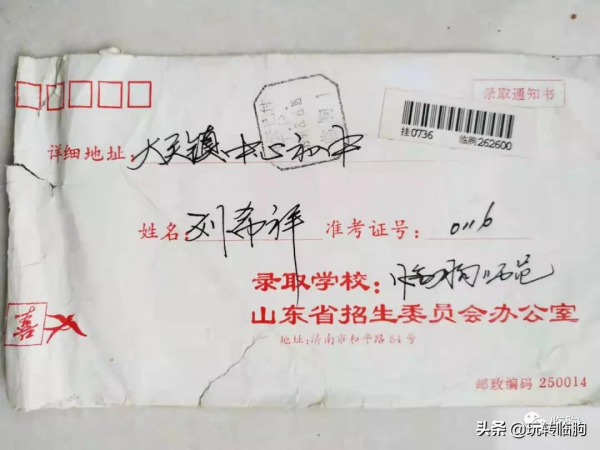 录取通知书
挂0736 临朐262600
详细地址：大关镇中心初中
姓名：刘希祥 准考证号：0116
录取学校：临朐师范
山东省招生委员会办公室
地址：济南市和平路84号
喜
邮政编码 250014
临朐
头条 @玩转临朐